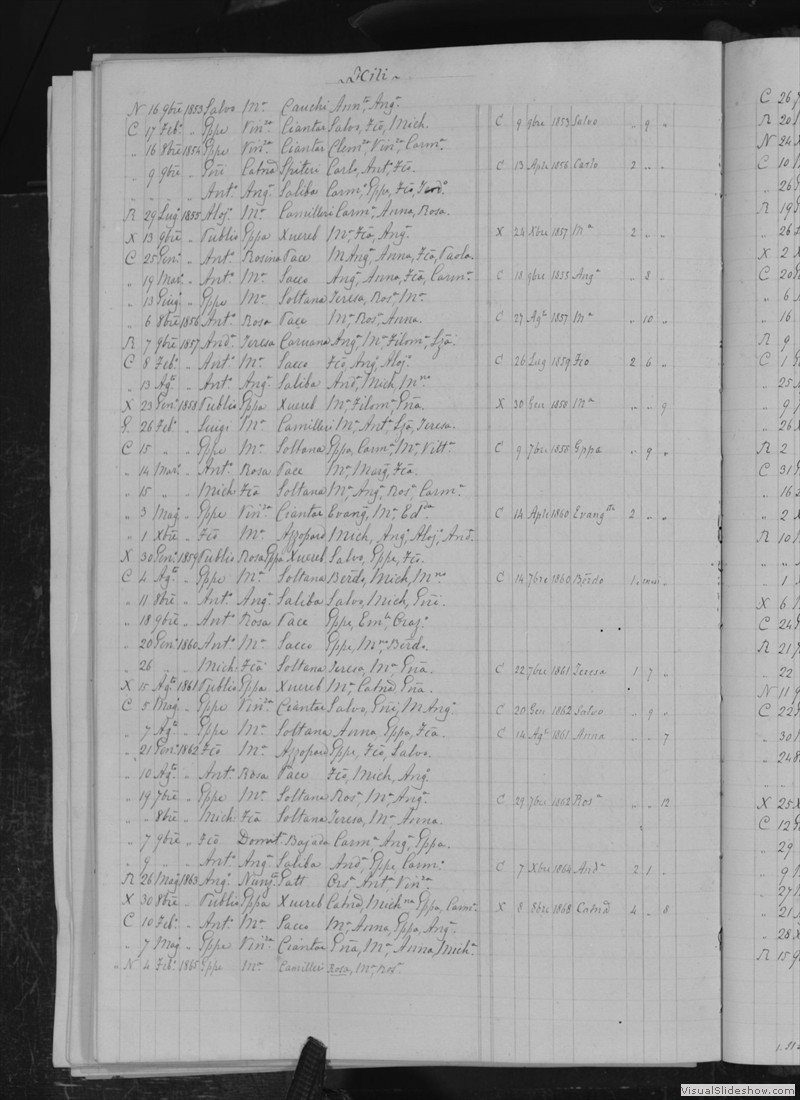 N 16 9bre 1853 Salvo Ma Cauchi Anna, Ang.
C 17 Feb. " Gppe Vinza Ciantar Salvo, Fco, Mich. C 9 9bre 1853 Salvo " 9 "
" 16 8bre 1854 Gppe Vinza Ciantar Clema, Vinza, Carma.
" 9 9bre " Gne Catna Spiteri Carlo, Anto, Fco. C 13 Aple 1856 Carlo 2 " "
" " " " Anto Anga Saliba Carmo, Gppe, Fco,
R 29 Lug. 1855 Aloj. Ma Camilleri Carma, Anna, Rosa.
X 13 9bre " Publio Gppa Xuereb Ma, Fca, Anga. X 24 Xbre 1857 Ma 2 " "
C 25 Gen. " Anto Rosina Pace M Anga, Anna, Fca, Paola.
" 19 Mar. " Anto Ma Sacco Anga, Anna, Fca, Carma. C 18 9bre 1855 Anga " 8 "
" 13 Giug. " Gppe Ma Soltana Teresa, Rosa, Ma.
" 6 8bre 1856 Anto Rosa Pace Ma, Rosa, Anna. C 27 Agto 1857 Ma " 10 "
R 7 9bre 1857 Andr. Teresa Caruana Anga, Ma, Filoma, Lja.
C 8 Feb. " Anto Ma Sacco Fco, Ang, Aloj. C 26 Lug 1859 Fco 2 6 "
" 13 Agto " Anto Anga Saliba Andr, Mich, Mno.
X 23 Gen. 1858 Publio Gppa Xuereb Ma, Filoma, Gna. X 30 Gen 1858 Ma " " 9
26 Feb. " Luigi Ma Camilleri Ma, Anta, Lja, Teresa.
C 15 " " Gppe Ma Soltana Gppa, Carma, Ma, Vitta. C 9 7bre 1858 Gppa " 9 "
" 14 Mar. " Anto Rosa Pace Ma, Marg, Fca.
" 15 " " Mich Fca Soltana Ma, Anga, Rosa, Carma.
" 3 Mag. " Gppe Vinza Ciantar Evang, Ma, C 14 Aple 1860 Evangta 2 " "
" 1 Xbre " Fco Ma Azzopard Mich, Ang, Aloj, Andr.
X 30 Gen. 1859 Publio Rosa Gppa Xuereb Salvo, Gppe, Fco.
C 4 Agto " Gppe Ma Soltana Berdo, Mich, Mno. C 14 7bre 1860 Berdo 1 "
" 11 8bre " Anto Anga Saliba Salvo, Mich, Gne.
" 18 9bre " Anto Rosa Pace Gppe, Eml, Oraz.
" 20 Gen. 1860 Anto Ma Sacco Gppe, Mno, Berdo.
" 26 " " Mich Fca Soltana Teresa, Ma, Gna. C 22 7bre 1861 Teresa 1 7 "
X 15 Agto 1861 Publio Gppa Xuereb Ma, Catna, Gna.
C 5 Mag. " Gppe Vinza Ciantar Salvo, Gne, M Ang. C 20 Gen 1862 Salvo " 9 "
" 7 Agto " Gppe Ma Soltana Anna, Gppa, Fca. C 14 Agto 1861 Anna " " 7
" 21 Gen. 1862 Fco Ma Azzopard Gppe, Fco, Salvo.
" 10 Agto " Anto Rosa Pace Fco, Mich, Ang.
" 19 7bre " Gppe Ma Soltana Rosa, Ma, Anga. C 29 7bre 1862 Rosa " " 12
" " 8bre " Mich Fca Soltana Teresa, Ma, Anna.
" 7 9bre " Fco Domit Bajada Carma, Anga, Gppa.
" 9 " " Anto Anga Saliba Andr, Gppe, Carmo. C 7 Xbre 1864 Andr 2 1 "
R 26 Mag. 1863 Ang. Nunza Gatt Orsa, Anta, Vinza.
X 30 8bre " Publio Gppa Xuereb Catna, Michna, Gppa, Carma. X 8 8bre 1868 Catna 4 " 8
C 10 Feb. " Anto Ma Sacco Ma, Anna, Gppa, Anga.
" 7 Mag. " Gppe Vinza Ciantar Gna, Ma, Anna, Micha.
" N 4 Feb. 1865 Gppe Ma Camilleri Rosa, Ma, Rosa.
C 26
R 20
N 24
C 10
" 26
R 19
" 26
X 2
C 20
" 6
" 16
R 9
C 1
" 25
" 9
" 26
R 2
C 31
" 16
" 2
R 10
" "
" 1
X 6
C 24
R 21
" 22
N 11
C 22
" 30
" 24
" "
X 25
C 12
" 29
" 9
" 27
" 21
" 28
R 15
VisualSlideshow.com